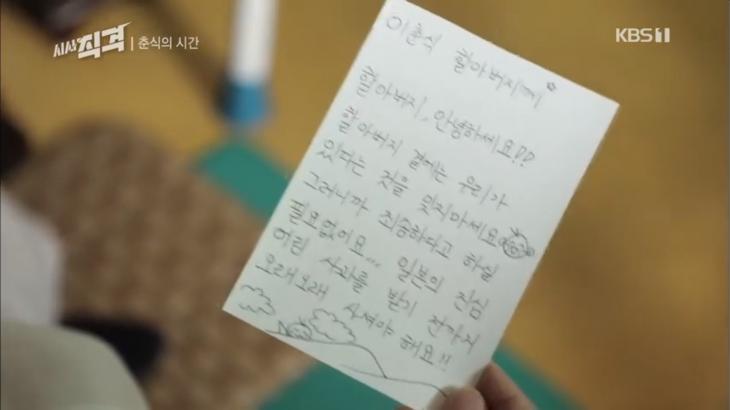 시사직격 | 춘식의 시간
KBS1
이춘식 할아버지께
할아버지, 안녕하세요!!
할아버지 곁에는 우리가
있다는 것을 잊지마세요
그러니까 죄송하다고 하실
필요없어요... 일본의 진심
어린 사과를 받기 전까지
오래오래 사셔야 해요!!